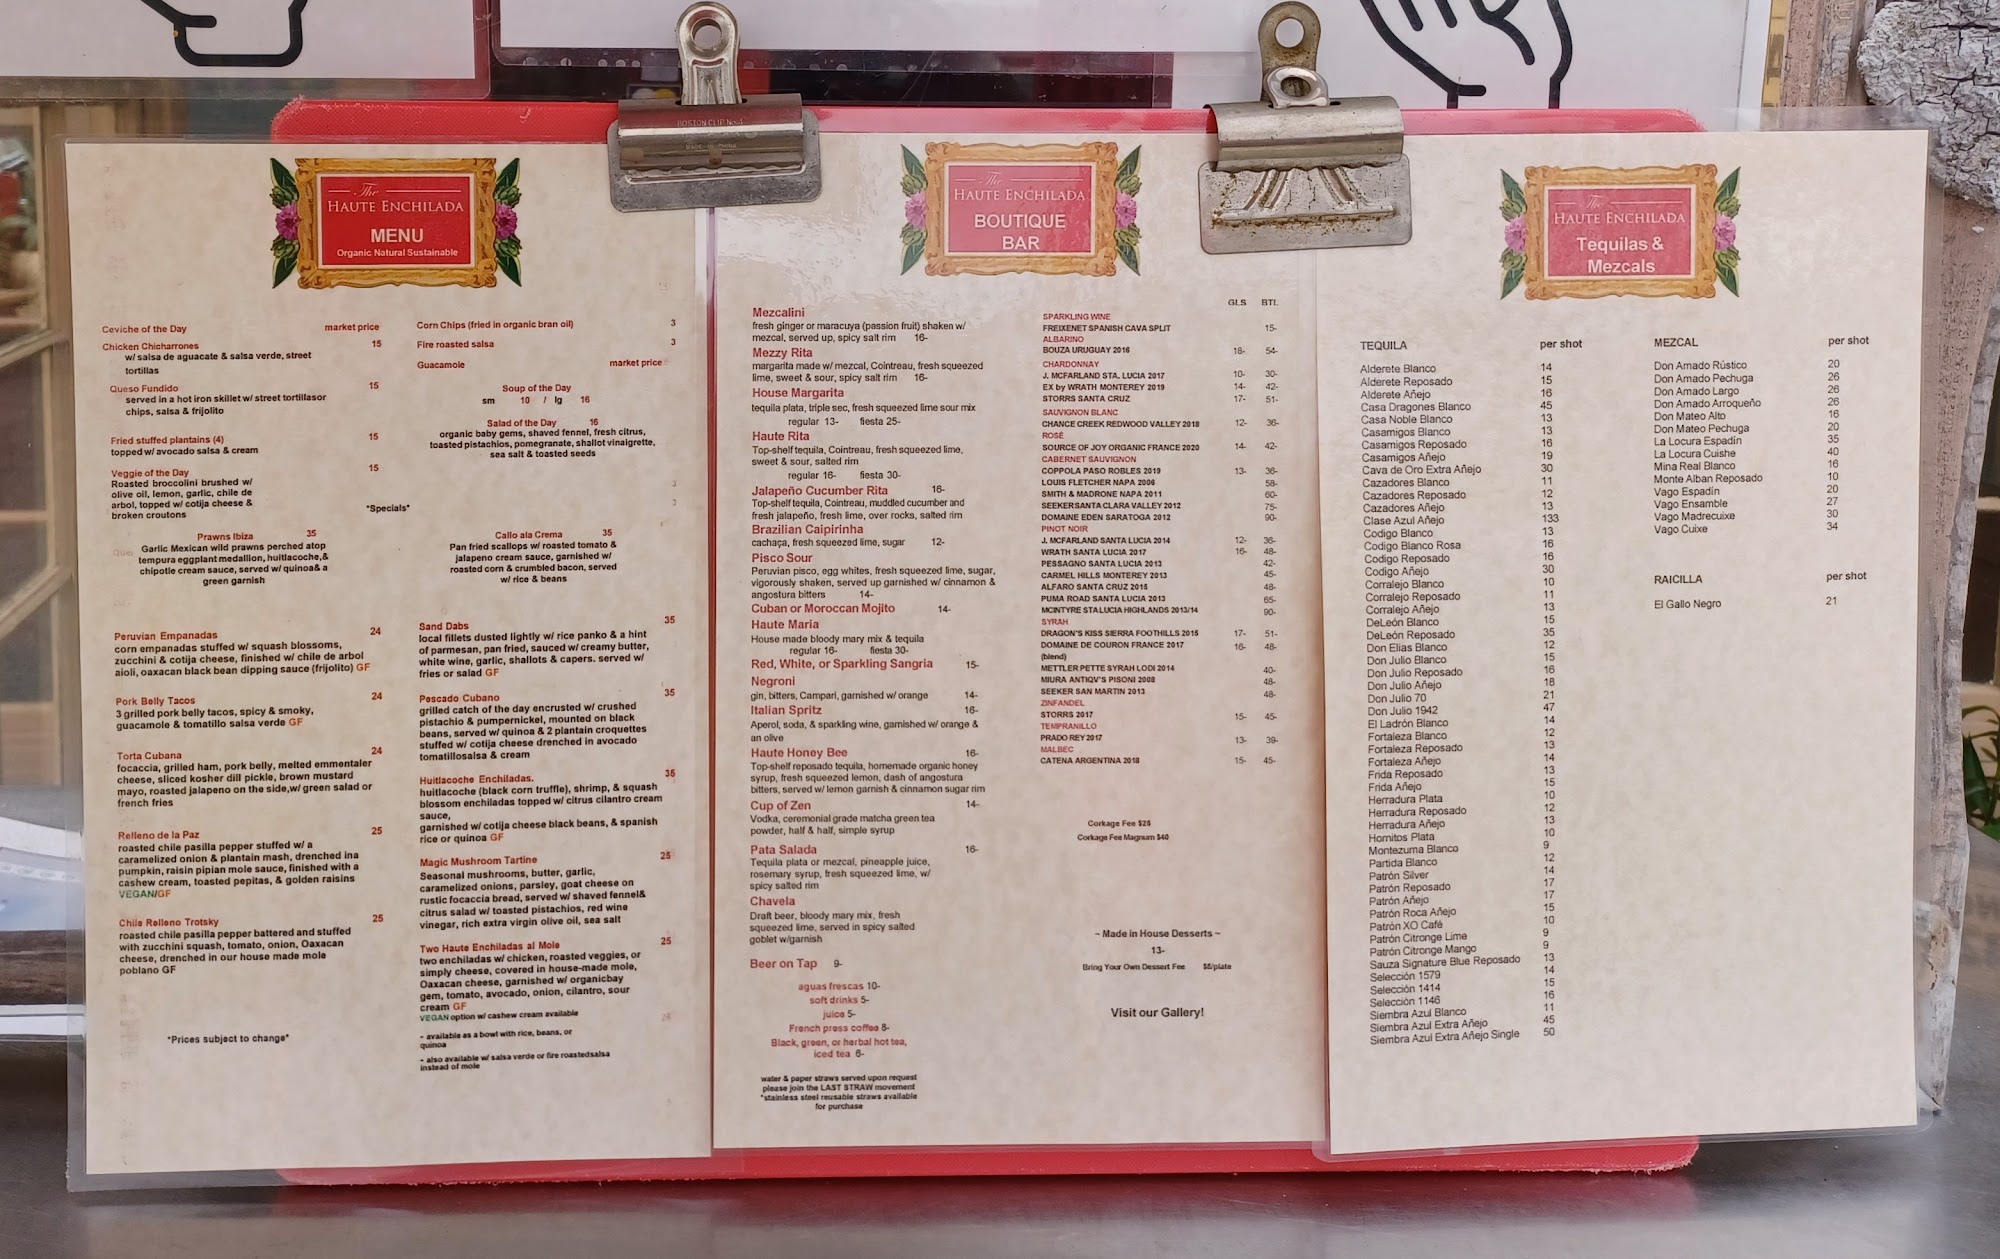 BOSTON CLIP No.4
MADE IN CHINA
The
HAUTE ENCHILADA
MENU
Organic Natural Sustainable
Ceviche of the Day market price
Chicken Chicharrones 15
w/ salsa de aguacate & salsa verde, street
tortillas
Queso Fundido 15
served in a hot iron skillet w/ street tortillasor
chips, salsa & frijolito
Fried stuffed plantains (4) 15
topped w/ avocado salsa & cream
Veggie of the Day 15
Roasted broccolini brushed w/
olive oil, lemon, garlic, chile de
arbol, topped w/ cotija cheese &
broken croutons
Corn Chips (fried in organic bran oil) 3
Fire roasted salsa 3
Guacamole market price
Soup of the Day
sm 10 / lg 16
Salad of the Day 16
organic baby gems, shaved fennel, fresh citrus,
toasted pistachios, pomegranate, shallot vinaigrette,
sea salt & toasted seeds
*Specials*
Prawns Ibiza 35
Garlic Mexican wild prawns perched atop
tempura eggplant medallion, huitlacoche,&
chipotle cream sauce, served w/ quinoa& a
green garnish
Callo ala Crema 35
Pan fried scallops w/ roasted tomato &
jalapeno cream sauce, garnished w/
roasted corn & crumbled bacon, served
w/ rice & beans
Peruvian Empanadas 24
corn empanadas stuffed w/ squash blossoms,
zucchini & cotija cheese, finished w/ chile de arbol
aioli, oaxacan black bean dipping sauce (frijolito) GF
Pork Belly Tacos 24
3 grilled pork belly tacos, spicy & smoky,
guacamole & tomatillo salsa verde GF
Torta Cubana 24
focaccia, grilled ham, pork belly, melted emmentaler
cheese, sliced kosher dill pickle, brown mustard
mayo, roasted jalapeno on the side,w/ green salad or
french fries
Relleno de la Paz 25
roasted chile pasilla pepper stuffed w/ a
caramelized onion & plantain mash, drenched ina
pumpkin, raisin pipian mole sauce, finished with a
cashew cream, toasted pepitas, & golden raisins
VEGAN/GF
Chile Relleno Trotsky 25
roasted chile pasilla pepper battered and stuffed
with zucchini squash, tomato, onion, Oaxacan
cheese, drenched in our house made mole
poblano GF
*Prices subject to change*
Sand Dabs 35
local fillets dusted lightly w/ rice panko & a hint
of parmesan, pan fried, sauced w/ creamy butter,
white wine, garlic, shallots & capers. served w/
fries or salad GF
Pescado Cubano 35
grilled catch of the day encrusted w/ crushed
pistachio & pumpernickel, mounted on black
beans, served w/ quinoa & 2 plantain croquettes
stuffed w/ cotija cheese drenched in avocado
tomatillosalsa & cream
Huitlacoche Enchiladas. 35
huitlacoche (black corn truffle), shrimp, & squash
blossom enchiladas topped w/ citrus cilantro cream
sauce,
garnished w/ cotija cheese black beans, & spanish
rice or quinoa GF
Magic Mushroom Tartine 25
Seasonal mushrooms, butter, garlic,
caramelized onions, parsley, goat cheese on
rustic focaccia bread, served w/ shaved fennel&
citrus salad w/ toasted pistachios, red wine
vinegar, rich extra virgin olive oil, sea salt
Two Haute Enchiladas al Mole 25
two enchiladas w/ chicken, roasted veggies, or
simply cheese, covered in house-made mole,
Oaxacan cheese, garnished w/ organicbay
gem, tomato, avocado, onion, cilantro, sour
cream GF
VEGAN option w/ cashew cream available
- available as a bowl with rice, beans, or
quinoa
- also available w/ salsa verde or fire roastedsalsa
instead of mole
The
HAUTE ENCHILADA
BOUTIQUE
BAR
Mezcalini
fresh ginger or maracuya (passion fruit) shaken w/
mezcal, served up, spicy salt rim 16-
Mezzy Rita
margarita made w/ mezcal, Cointreau, fresh squeezed
lime, sweet & sour, spicy salt rim 16-
House Margarita
tequila plata, triple sec, fresh squeezed lime sour mix
regular 13- fiesta 25-
Haute Rita
Top-shelf tequila, Cointreau, fresh squeezed lime,
sweet & sour, salted rim
regular 16- fiesta 30-
Jalapeño Cucumber Rita 16-
Top-shelf tequila, Cointreau, muddled cucumber and
fresh jalapeño, fresh lime, over rocks, salted rim
Brazilian Caipirinha
cachaça, fresh squeezed lime, sugar 12-
Pisco Sour
Peruvian pisco, egg whites, fresh squeezed lime, sugar,
vigorously shaken, served up garnished w/ cinnamon &
angostura bitters 14-
Cuban or Moroccan Mojito 14-
Haute Maria
House made bloody mary mix & tequila
regular 16- fiesta 30-
Red, White, or Sparkling Sangria 15-
Negroni
gin, bitters, Campari, garnished w/ orange 14-
Italian Spritz 16-
Aperol, soda, & sparkling wine, garnished w/ orange &
an olive
Haute Honey Bee 16-
Top-shelf reposado tequila, homemade organic honey
syrup, fresh squeezed lemon, dash of angostura
bitters, served w/ lemon garnish & cinnamon sugar rim
Cup of Zen 14-
Vodka, ceremonial grade matcha green tea
powder, half & half, simple syrup
Pata Salada 16-
Tequila plata or mezcal, pineapple juice,
rosemary syrup, fresh squeezed lime, w/
spicy salted rim
Chavela
Draft beer, bloody mary mix, fresh
squeezed lime, served in spicy salted
goblet w/garnish
Beer on Tap 9-
aguas frescas 10-
soft drinks 5-
juice 5-
French press coffee 8-
Black, green, or herbal hot tea,
iced tea 6-
water & paper straws served upon request
please join the LAST STRAW movement
*stainless steel reusable straws available
for purchase
GLS BTL
SPARKLING WINE
FREIXENET SPANISH CAVA SPLIT 15-
ALBARINO
BOUZA URUGUAY 2016 18- 54-
CHARDONNAY
J. MCFARLAND STA. LUCIA 2017 10- 30-
EX by WRATH MONTEREY 2019 14- 42-
STORRS SANTA CRUZ 17- 51-
SAUVIGNON BLANC
CHANCE CREEK REDWOOD VALLEY 2018 12- 36-
ROSÉ
SOURCE OF JOY ORGANIC FRANCE 2020 14- 42-
CABERNET SAUVIGNON
COPPOLA PASO ROBLES 2019 13- 36-
LOUIS FLETCHER NAPA 2006 58-
SMITH & MADRONE NAPA 2011 60-
SEEKER SANTA CLARA VALLEY 2012 75-
DOMAINE EDEN SARATOGA 2012 90-
PINOT NOIR
J. MCFARLAND SANTA LUCIA 2014 12- 36-
WRATH SANTA LUCIA 2017 16- 48-
PESSAGNO SANTA LUCIA 2013 42-
CARMEL HILLS MONTEREY 2013 45-
ALFARO SANTA CRUZ 2015 48-
PUMA ROAD SANTA LUCIA 2013 65-
MCINTYRE STA LUCIA HIGHLANDS 2013/14 90-
SYRAH
DRAGON'S KISS SIERRA FOOTHILLS 2015 17- 51-
DOMAINE DE COURON FRANCE 2017 16- 48-
(blend)
METTLER PETTE SYRAH LODI 2014 40-
MIURA ANTIQV'S PISONI 2008 48-
SEEKER SAN MARTIN 2013 48-
ZINFANDEL
STORRS 2017 15- 45-
TEMPRANILLO
PRADO REY 2017 13- 39-
MALBEC
CATENA ARGENTINA 2018 15- 45-
Corkage Fee $25
Corkage Fee Magnum $40
~ Made in House Desserts ~
13-
Bring Your Own Dessert Fee $5/plate
Visit our Gallery!
The
HAUTE ENCHILADA
Tequilas &
Mezcals
TEQUILA per shot
Alderete Blanco 14
Alderete Reposado 15
Alderete Añejo 16
Casa Dragones Blanco 45
Casa Noble Blanco 13
Casamigos Blanco 13
Casamigos Reposado 16
Casamigos Añejo 19
Cava de Oro Extra Añejo 30
Cazadores Blanco 11
Cazadores Reposado 12
Cazadores Añejo 13
Clase Azul Añejo 133
Codigo Blanco 13
Codigo Blanco Rosa 16
Codigo Reposado 16
Codigo Añejo 30
Corralejo Blanco 10
Corralejo Reposado 11
Corralejo Añejo 13
DeLeón Blanco 15
DeLeón Reposado 35
Don Elias Blanco 12
Don Julio Blanco 15
Don Julio Reposado 16
Don Julio Añejo 18
Don Julio 70 21
Don Julio 1942 47
El Ladrón Blanco 14
Fortaleza Blanco 12
Fortaleza Reposado 13
Fortaleza Añejo 14
Frida Reposado 13
Frida Añejo 15
Herradura Plata 10
Herradura Reposado 12
Herradura Añejo 13
Hornitos Plata 10
Montezuma Blanco 9
Partida Blanco 12
Patrón Silver 14
Patrón Reposado 17
Patrón Añejo 17
Patrón Roca Añejo 15
Patrón XO Café 10
Patrón Citronge Lime 9
Patrón Citronge Mango 9
Sauza Signature Blue Reposado 13
Selección 1579 14
Selección 1414 15
Selección 1146 16
Siembra Azul Blanco 11
Siembra Azul Extra Añejo 45
Siembra Azul Extra Añejo Single 50
MEZCAL per shot
Don Amado Rústico 20
Don Amado Pechuga 26
Don Amado Largo 26
Don Amado Arroqueño 26
Don Mateo Alto 16
Don Mateo Pechuga 20
La Locura Espadín 35
La Locura Cuishe 40
Mina Real Blanco 16
Monte Alban Reposado 10
Vago Espadín 20
Vago Ensamble 27
Vago Madrecuixe 30
Vago Cuixe 34
RAICILLA per shot
El Gallo Negro 21